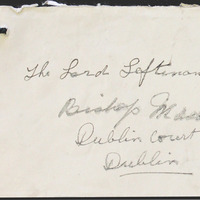 The Lord Leftinan
Bishop
Dublin Court
Dublin